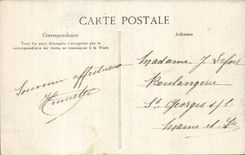 CARTE POSTALE
Correspondance
Adresse
Tous les pays étrangers n'acceptent pas la
correspondance au verso, se renseigner
à la Poste
Souvenir affectueux
Henriette
Madame J. Lefort
Boulangerie
St Georges s/L
Maine et Le